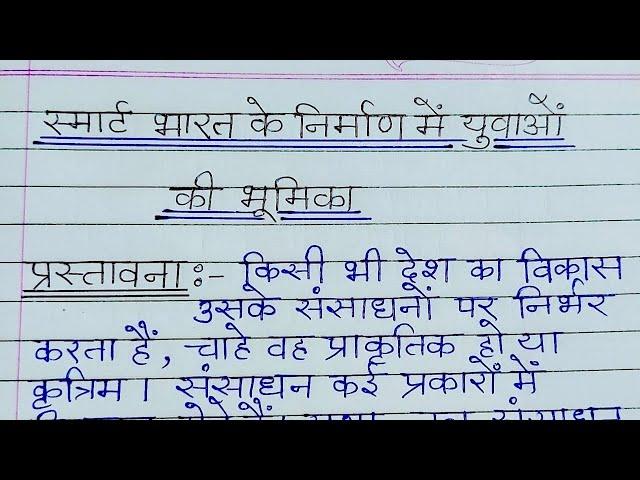 स्मार्ट भारत के निर्माण में युवाओं
की भूमिका
प्रस्तावना :- किसी भी देश का विकास
उसके संसाधनों पर निर्भर
करता हैं, चाहे वह प्राकृतिक हो या
कृत्रिम । संसाधन कई प्रकारों में